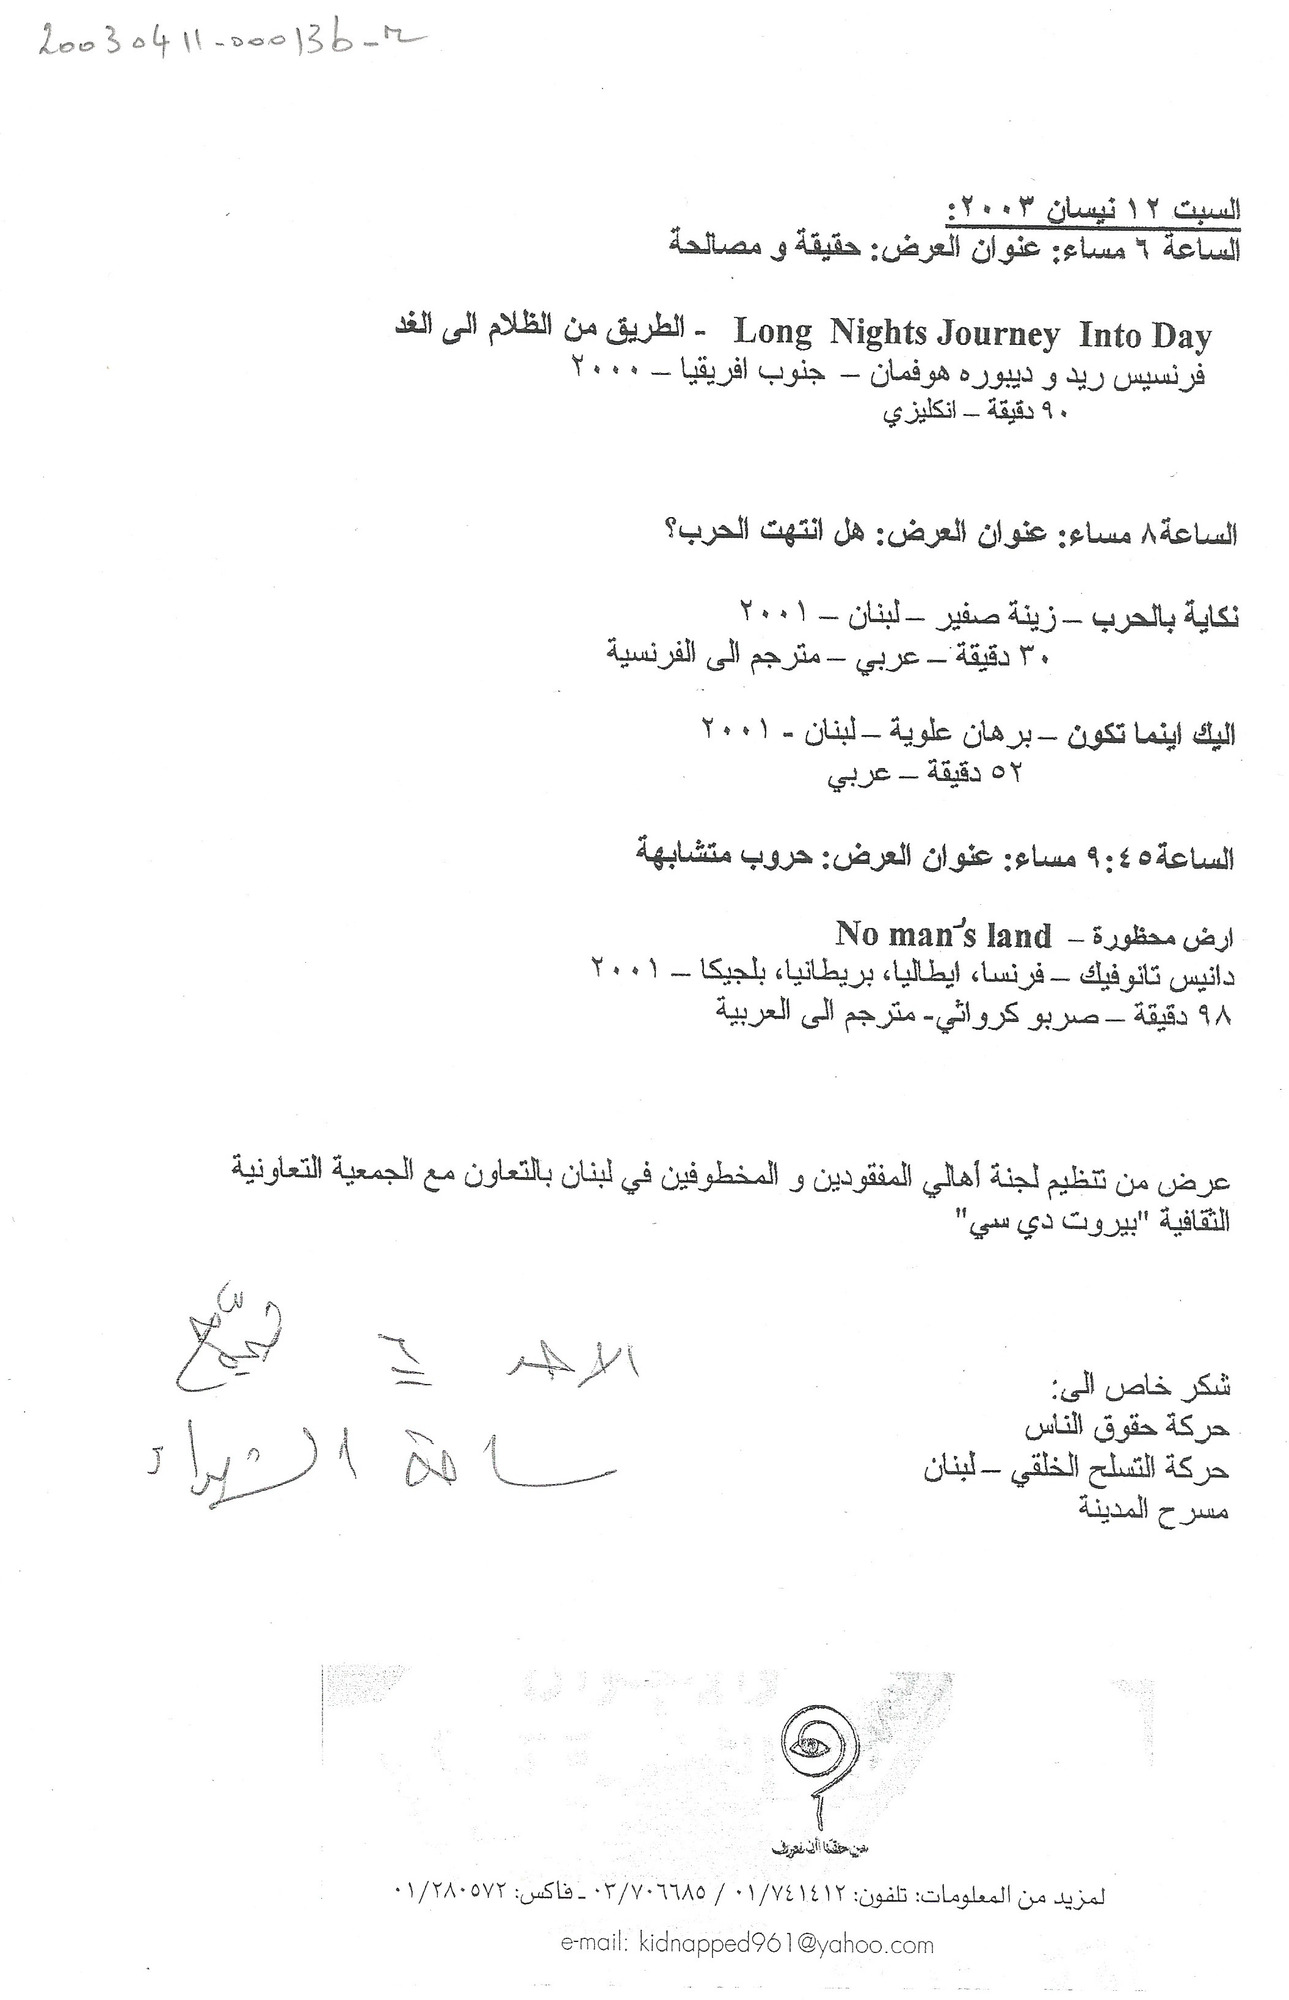 20030411-00013b-r
السبت ١٢ نيسان ٢٠٠٣:
الساعة ٦ مساء: عنوان العرض: حقيقة و مصالحة
Long Nights Journey Into Day - الطريق من الظلام الى الغد
فرنسيس ريد و ديبوره هوفمان – جنوب افريقيا – ٢٠٠٠
٩٠ دقيقة – انكليزي
الساعة٨ مساء: عنوان العرض: هل انتهت الحرب؟
نكاية بالحرب – زينة صفير – لبنان – ٢٠٠١
٣٠ دقيقة – عربي – مترجم الى الفرنسية
اليك اينما تكون – برهان علوية – لبنان - ٢٠٠١
٥٢ دقيقة – عربي
الساعة٩:٤٥ مساء: عنوان العرض: حروب متشابهة
ارض محظورة – No man's land
دانيس تانوفيك – فرنسا، ايطاليا، بريطانيا، بلجيكا – ٢٠٠١
٩٨ دقيقة – صربو كرواتي- مترجم الى العربية
عرض من تنظيم لجنة أهالي المفقودين و المخطوفين في لبنان بالتعاون مع الجمعية التعاونية
الثقافية "بيروت دي سي"
الاحد ٦ تجمّع
ساحة الشهداء
شكر خاص الى:
حركة حقوق الناس
حركة التسلح الخلقي – لبنان
مسرح المدينة
من حقنا أن نعرف
لمزيد من المعلومات: تلفون: ٠١/٧٤١٤١٢ / ٠٣/٧٠٦٦٨٥ - فاكس: ٠١/٢٨٠٥٧٢
e-mail: kidnapped961@yahoo.com